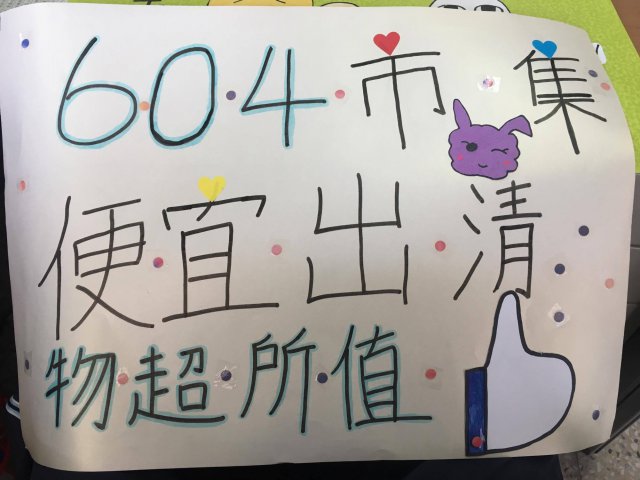 604市集
便宜出清
物超所值